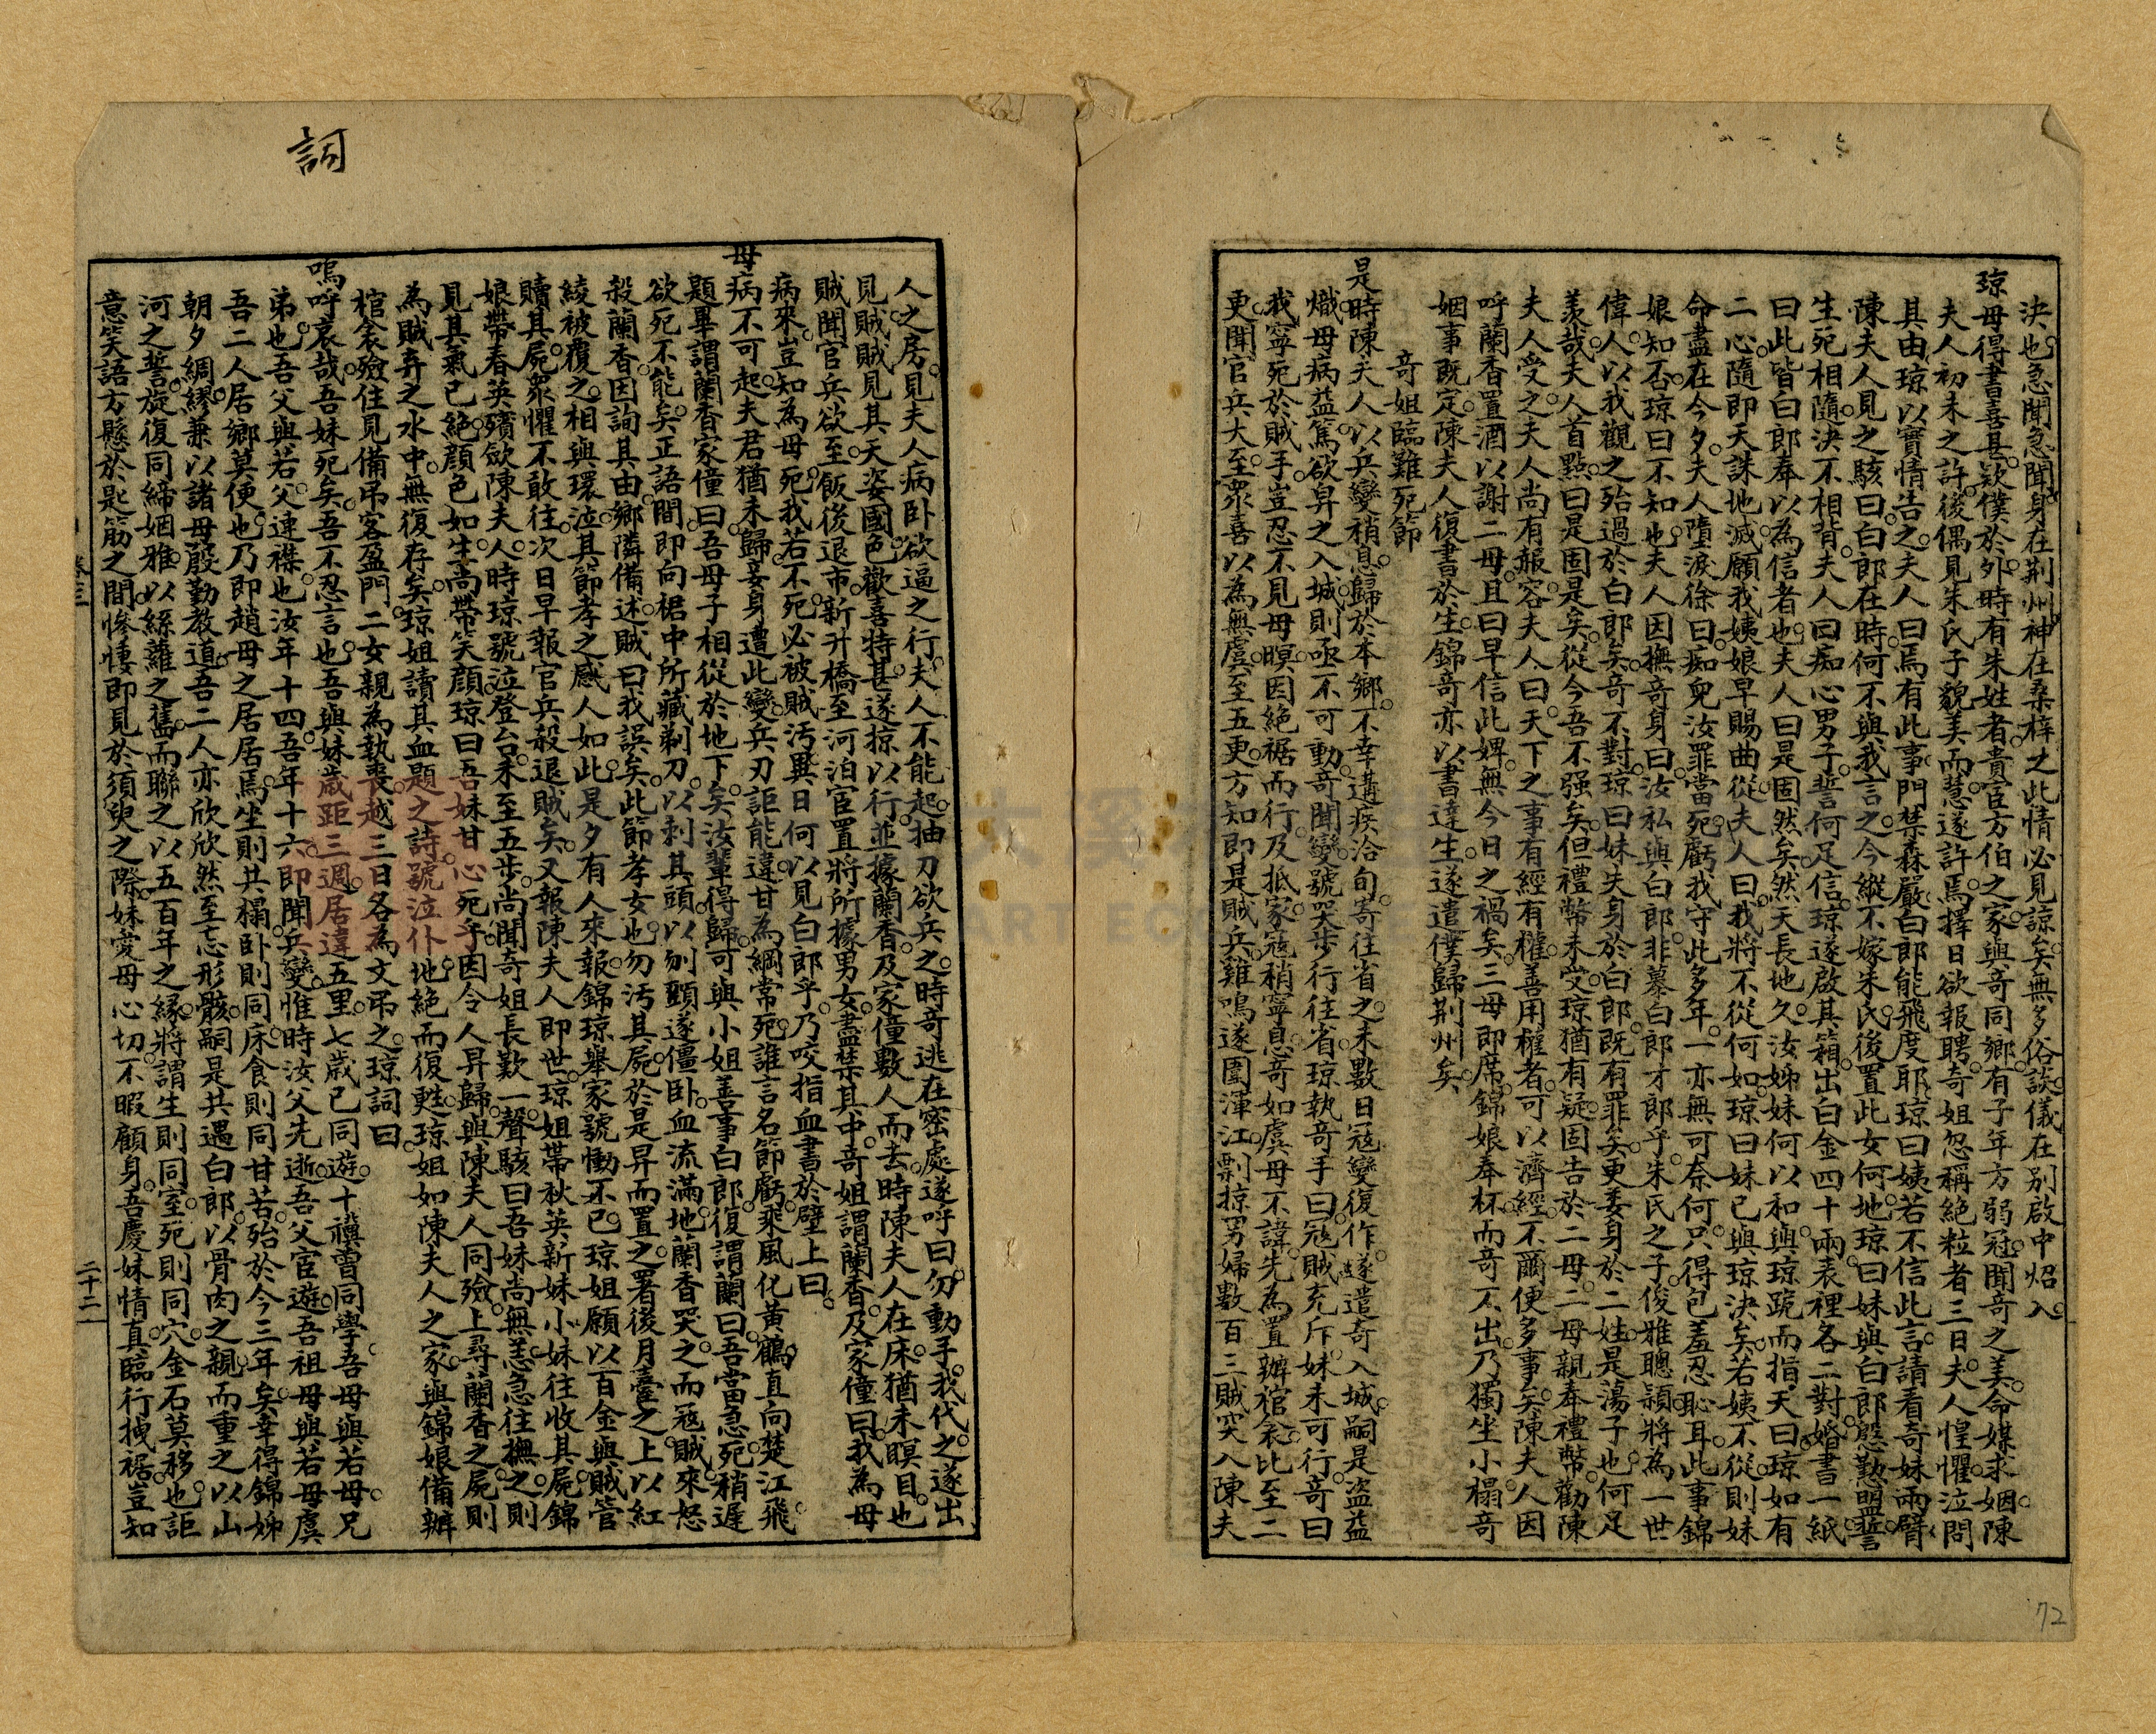 決也急聞急聞身在荆州神在桑梓之此情必見諒矣無多俗談儀在别啟中炤入
琼母得書喜甚欵僕於外時有朱姓者貴宦方伯之家與竒同鄉有子年方弱冠聞奇之美命媒求姻陳
夫人初未之許後偶見朱氏子貌美而慧遂許焉擇日欲報聘奇姐忽稱絶粒者三日夫人惶懼泣問
其由琼以實情告之夫人曰焉有此事門禁森嚴白郎能飛度耶琼曰姨若不信此言請看奇妹兩臂
陳夫人見之駭曰白郎在時何不與我言之今縱不嫁朱氏後置此女何地琼曰妹與白郎慇懃盟誓
生死相隨決不相背夫人曰痴心男子誓何足信琼遂啟其箱出白金四十兩表裡各二對婚書一紙
曰此皆白郎奉以為信者也夫人曰是固然矣然天長地久汝姊妹何以和與琼跪而指天曰琼如有
二心隨即天誅地滅願我姨娘早賜曲從夫人曰我將不從何如琼曰妹已與琼決矣若姨不從則妹
命盡在今夕夫人墮淚徐曰痴兒汝罪當死虧我守此多年一亦無可奈何只得包羞忍恥耳此事錦
娘知否琼曰不知也夫人因撫奇身曰汝私與白郎非慕白郎才郎乎朱氏之子俊雅聰頴將為一世
偉人以我觀之殆過於白郎矣奇不對琼曰妹失身於白郎既有罪矣更委身於二姓是蕩子也何足
羨哉夫人首點曰是固是矣從今吾不强矣但禮幣未受琼猶有疑固告於二母二母親奉禮幣勸陳
夫人受之夫人尚有報容夫人曰天下之事有經有權善用權者可以濟經不爾便多事矣陳夫人因
呼蘭香置酒以謝二母且曰早信此婢無今日之禍矣三母即席錦娘奉杯而奇不出乃獨坐小榻奇
姻事既定陳夫人復書於生錦奇亦以書達生遂遣僕歸荆州矣
竒姐臨難死節
是時陳夫人以兵變稍息歸於本鄉不幸遘疾洽旬寄往省之未數日冦變復作遂遣奇入城嗣是盗益
熾母病益篤欲舁之入城則亟不可動奇聞變號哭步行往省琼執奇手曰冦賊充斥妹未可行奇曰
我寧死於賊手豈忍不見母暝因絶裾而行及抵家冦稍寧息竒如虞母不諱先為置辦棺衾比至二
更聞官兵大至衆喜以為無虞至五更方知即是賊兵雞鳴遂圍渾江剽掠男婦數百三賊突入陳夫
人之房見夫人病卧欲逼之行夫人不能起抽刀欲兵之時奇逃在密處遂呼曰勿動手我代之遂出
見賊賊見其天姿國色歡喜特甚遂掠以行並據蘭香及家僮數人而去時陳夫人在床猶未暝目也
賊聞官兵欲至飯後退市新升橋至河泊官置將所據男女盡禁其中竒姐謂蘭香及家僮曰我為母
病來豈知為母死我若不死必被賊汚異日何以見白郎乎乃咬指血書於壁上曰
母病不可起夫君猶未歸妾身遭此變兵刃詎能違甘為綱常死誰言名節虧乘風化黃鶴直向楚江飛
題畢謂蘭香家僮曰吾母子相從於地下矣汝輩得歸可與小姐善事白郎復謂蘭曰吾當急死稍遲
欲死不能矣正語間即向裙中所藏剃刀以刺其頭以刎頸遂僵卧血流滿地蘭香哭之而冦賊來怒
殺蘭香因詢其由鄉隣備述賊曰我誤矣此節孝女也勿汚其屍於是舁而置之署後月臺之上以紅
綾被覆之相與環泣其節孝之感人如此是夕有人來報錦琼舉家號慟不已琼姐願以百金與賊管
贖其屍衆懼不敢往次日早報官兵殺退賊矣又報陳夫人即世琼姐帶秋英新妹小妹往收其屍錦
娘帶春英殯歛陳夫人時琼號泣登台未至五步尚聞奇姐長歎一聲駭曰吾妹尚無恙急往撫之則
見其氣已絶顔色如生尚帶笑顔琼曰吾妹甘心死乎因令人舁歸與陳夫人同殮上尋蘭香之屍則
為賊弃之水中無復存矣琼姐讀其血題之詩號泣仆地絶而復甦琼姐如陳夫人之家與錦娘備辦
棺衾殮住見備吊客盈門二女親為執喪越三日各為文吊之琼詞曰
嗚呼哀哉吾妹死矣吾不忍言也吾與妹歲距三週居違五里七歲已同遊十禩曾同學吾母與若母兄
弟也吾父與若父連襟也汝年十四吾年十六即聞兵變惟時汝父先逝吾父宦遊吾祖母與若母虞
吾二人居鄉莫便也乃即趙母之居居焉坐則共榻卧則同床食則同甘苦殆於今三年矣幸得錦姊
朝夕綢繆兼以諸母殷勤教道吾二人亦欣欣然至忘形骸嗣是共遇白郎以骨肉之親而重之以山
河之誓旋復同締姻雅以絲蘿之舊而聯之以五百年之縁將謂生則同室死則同穴金石莫移也詎
意笑語方懸於匙筯之間慘悽即見於須臾之際妹愛母心切不暇顧身吾慶妹情真臨行拽裾豈知
詞
二十二
72